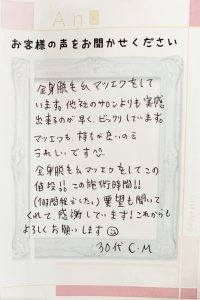 An
お客様の声をお聞かせください
全身脱毛&マツエクをして
います。他社のサロンよりも実感
出来るのが早く、ビックリしています。
マツエクも、持ちが良いので
うれしいです
全身脱毛&マツエクをしてこの
値段!! この施術時間!!
(1時間程でした。) 要望も聞いて
くれて、感謝しています!これからも
よろしくお願いします
30代 C.M